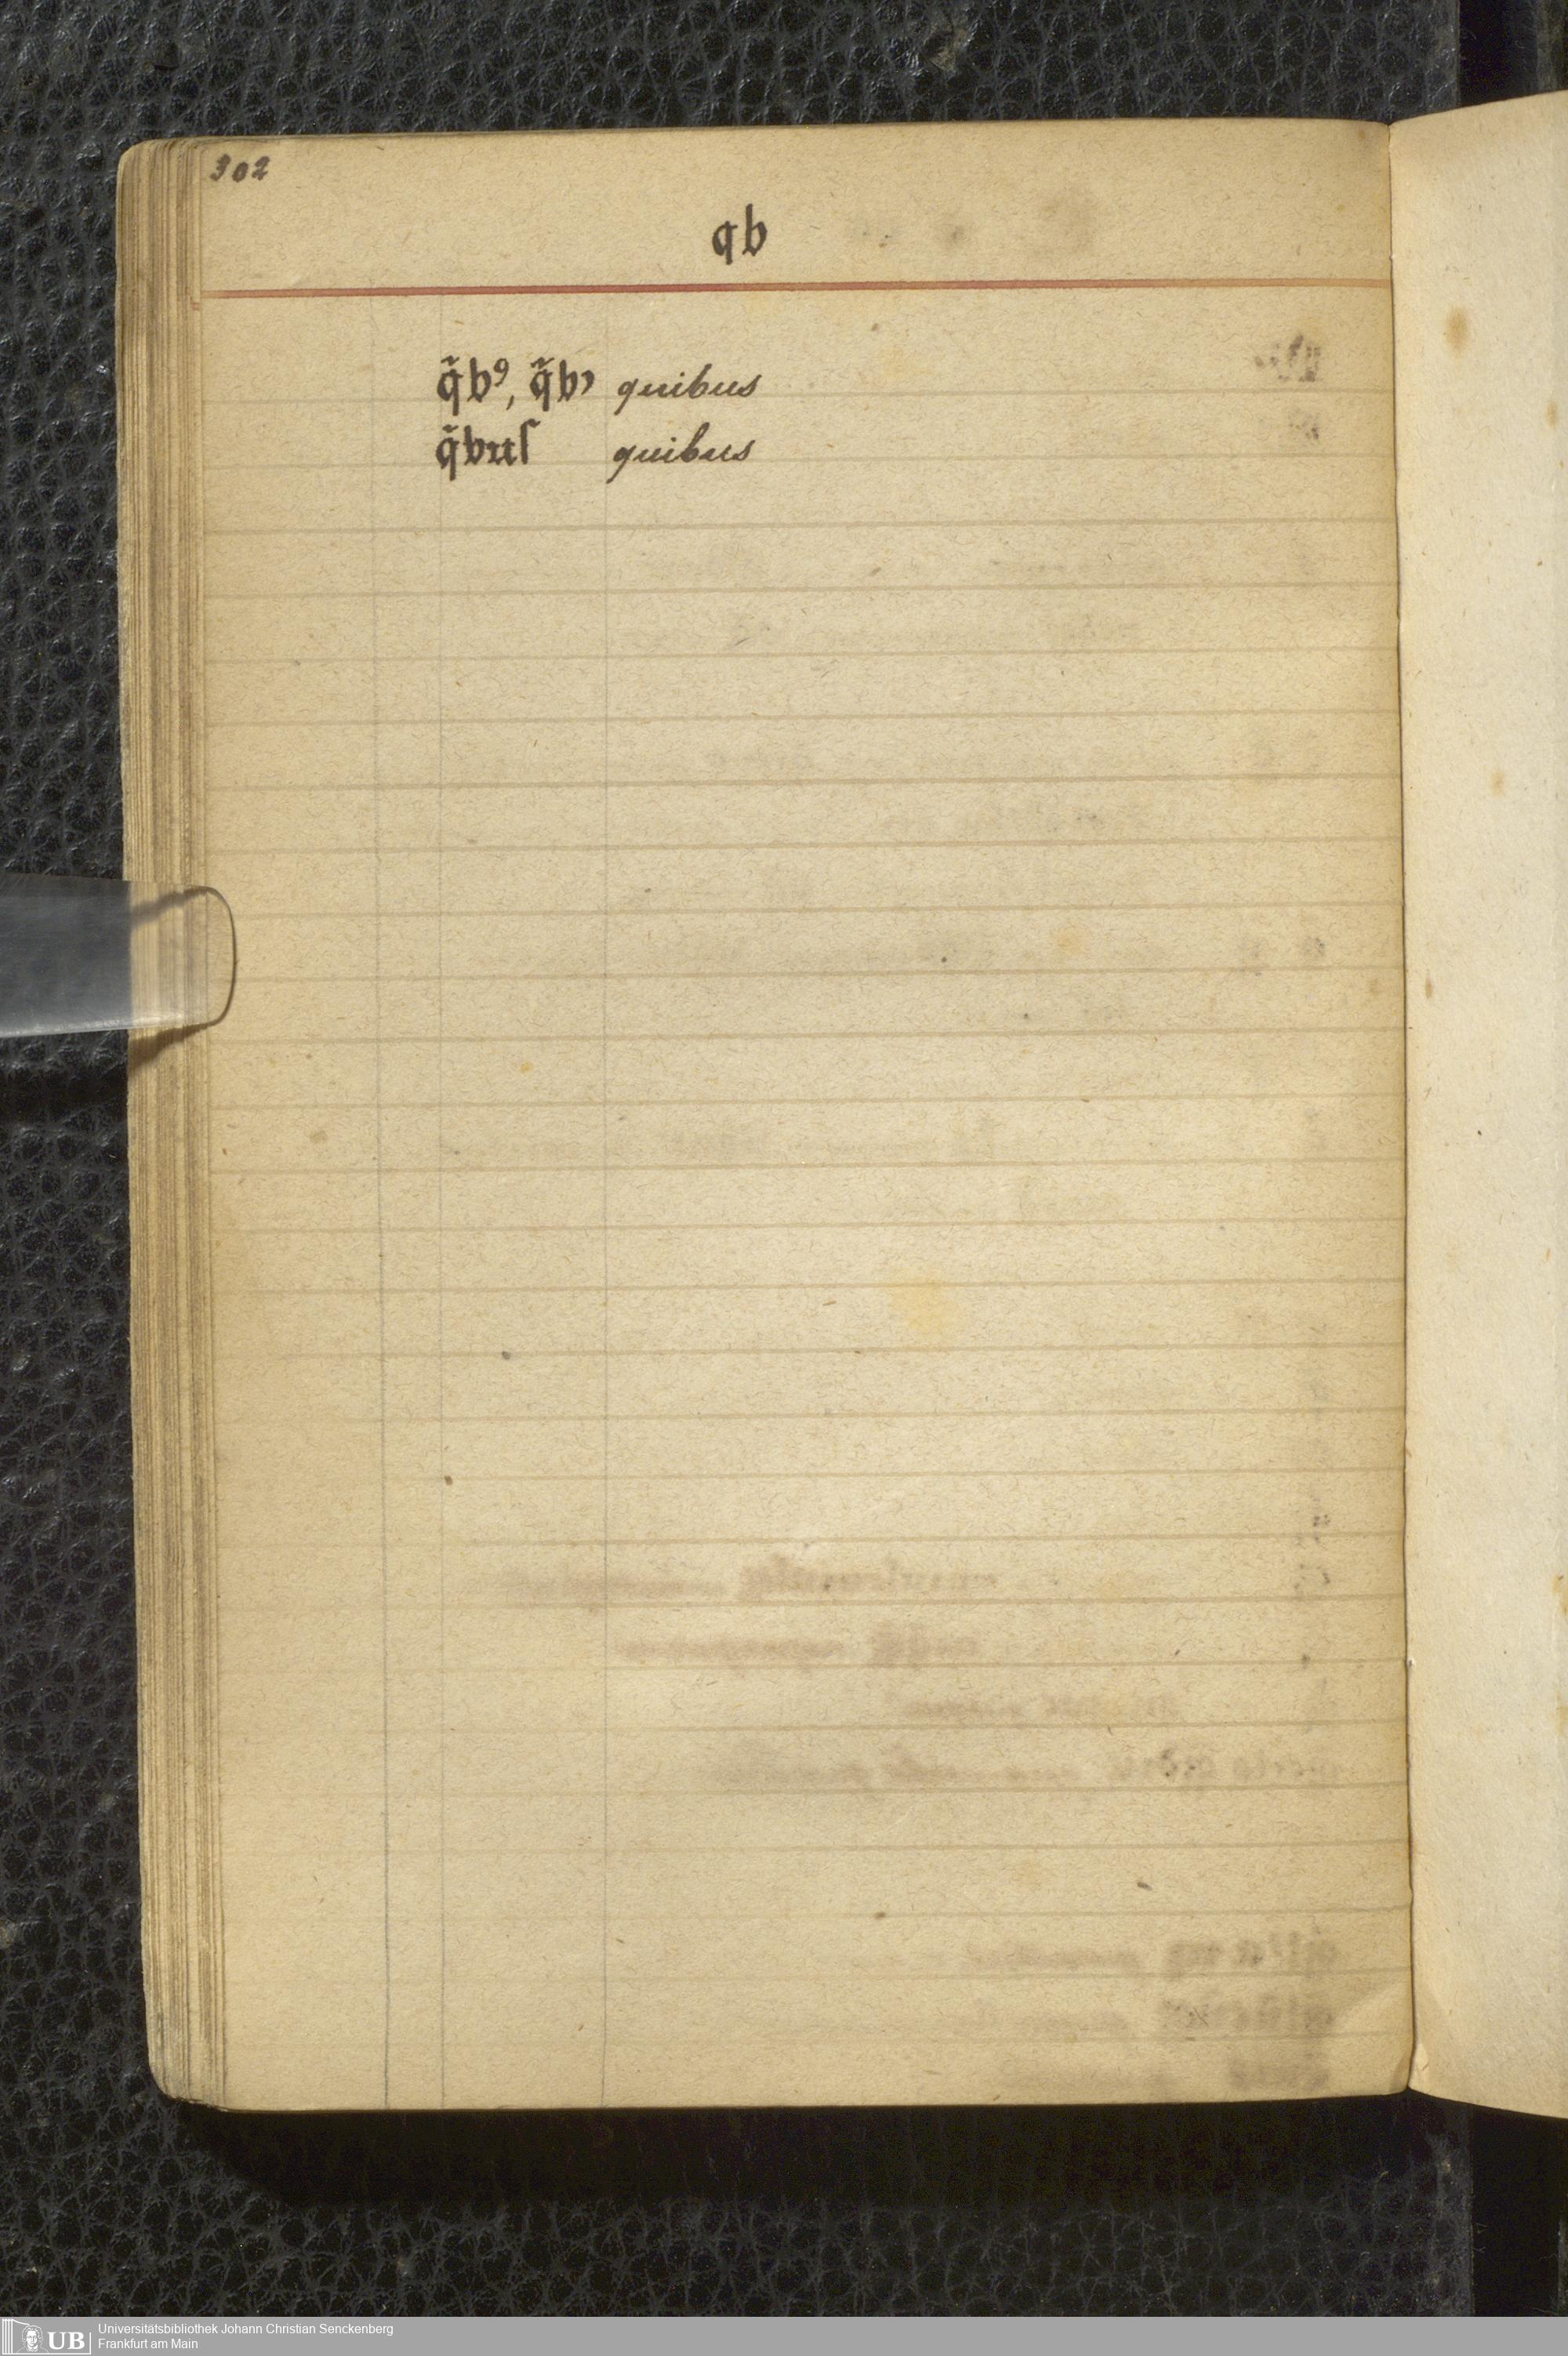 302
qb
q̃bꝰ, q̃bꝫ quibus
q̃buſ quibus
UB
Universitätsbibliothek Johann Christian Senckenberg
Frankfurt am Main